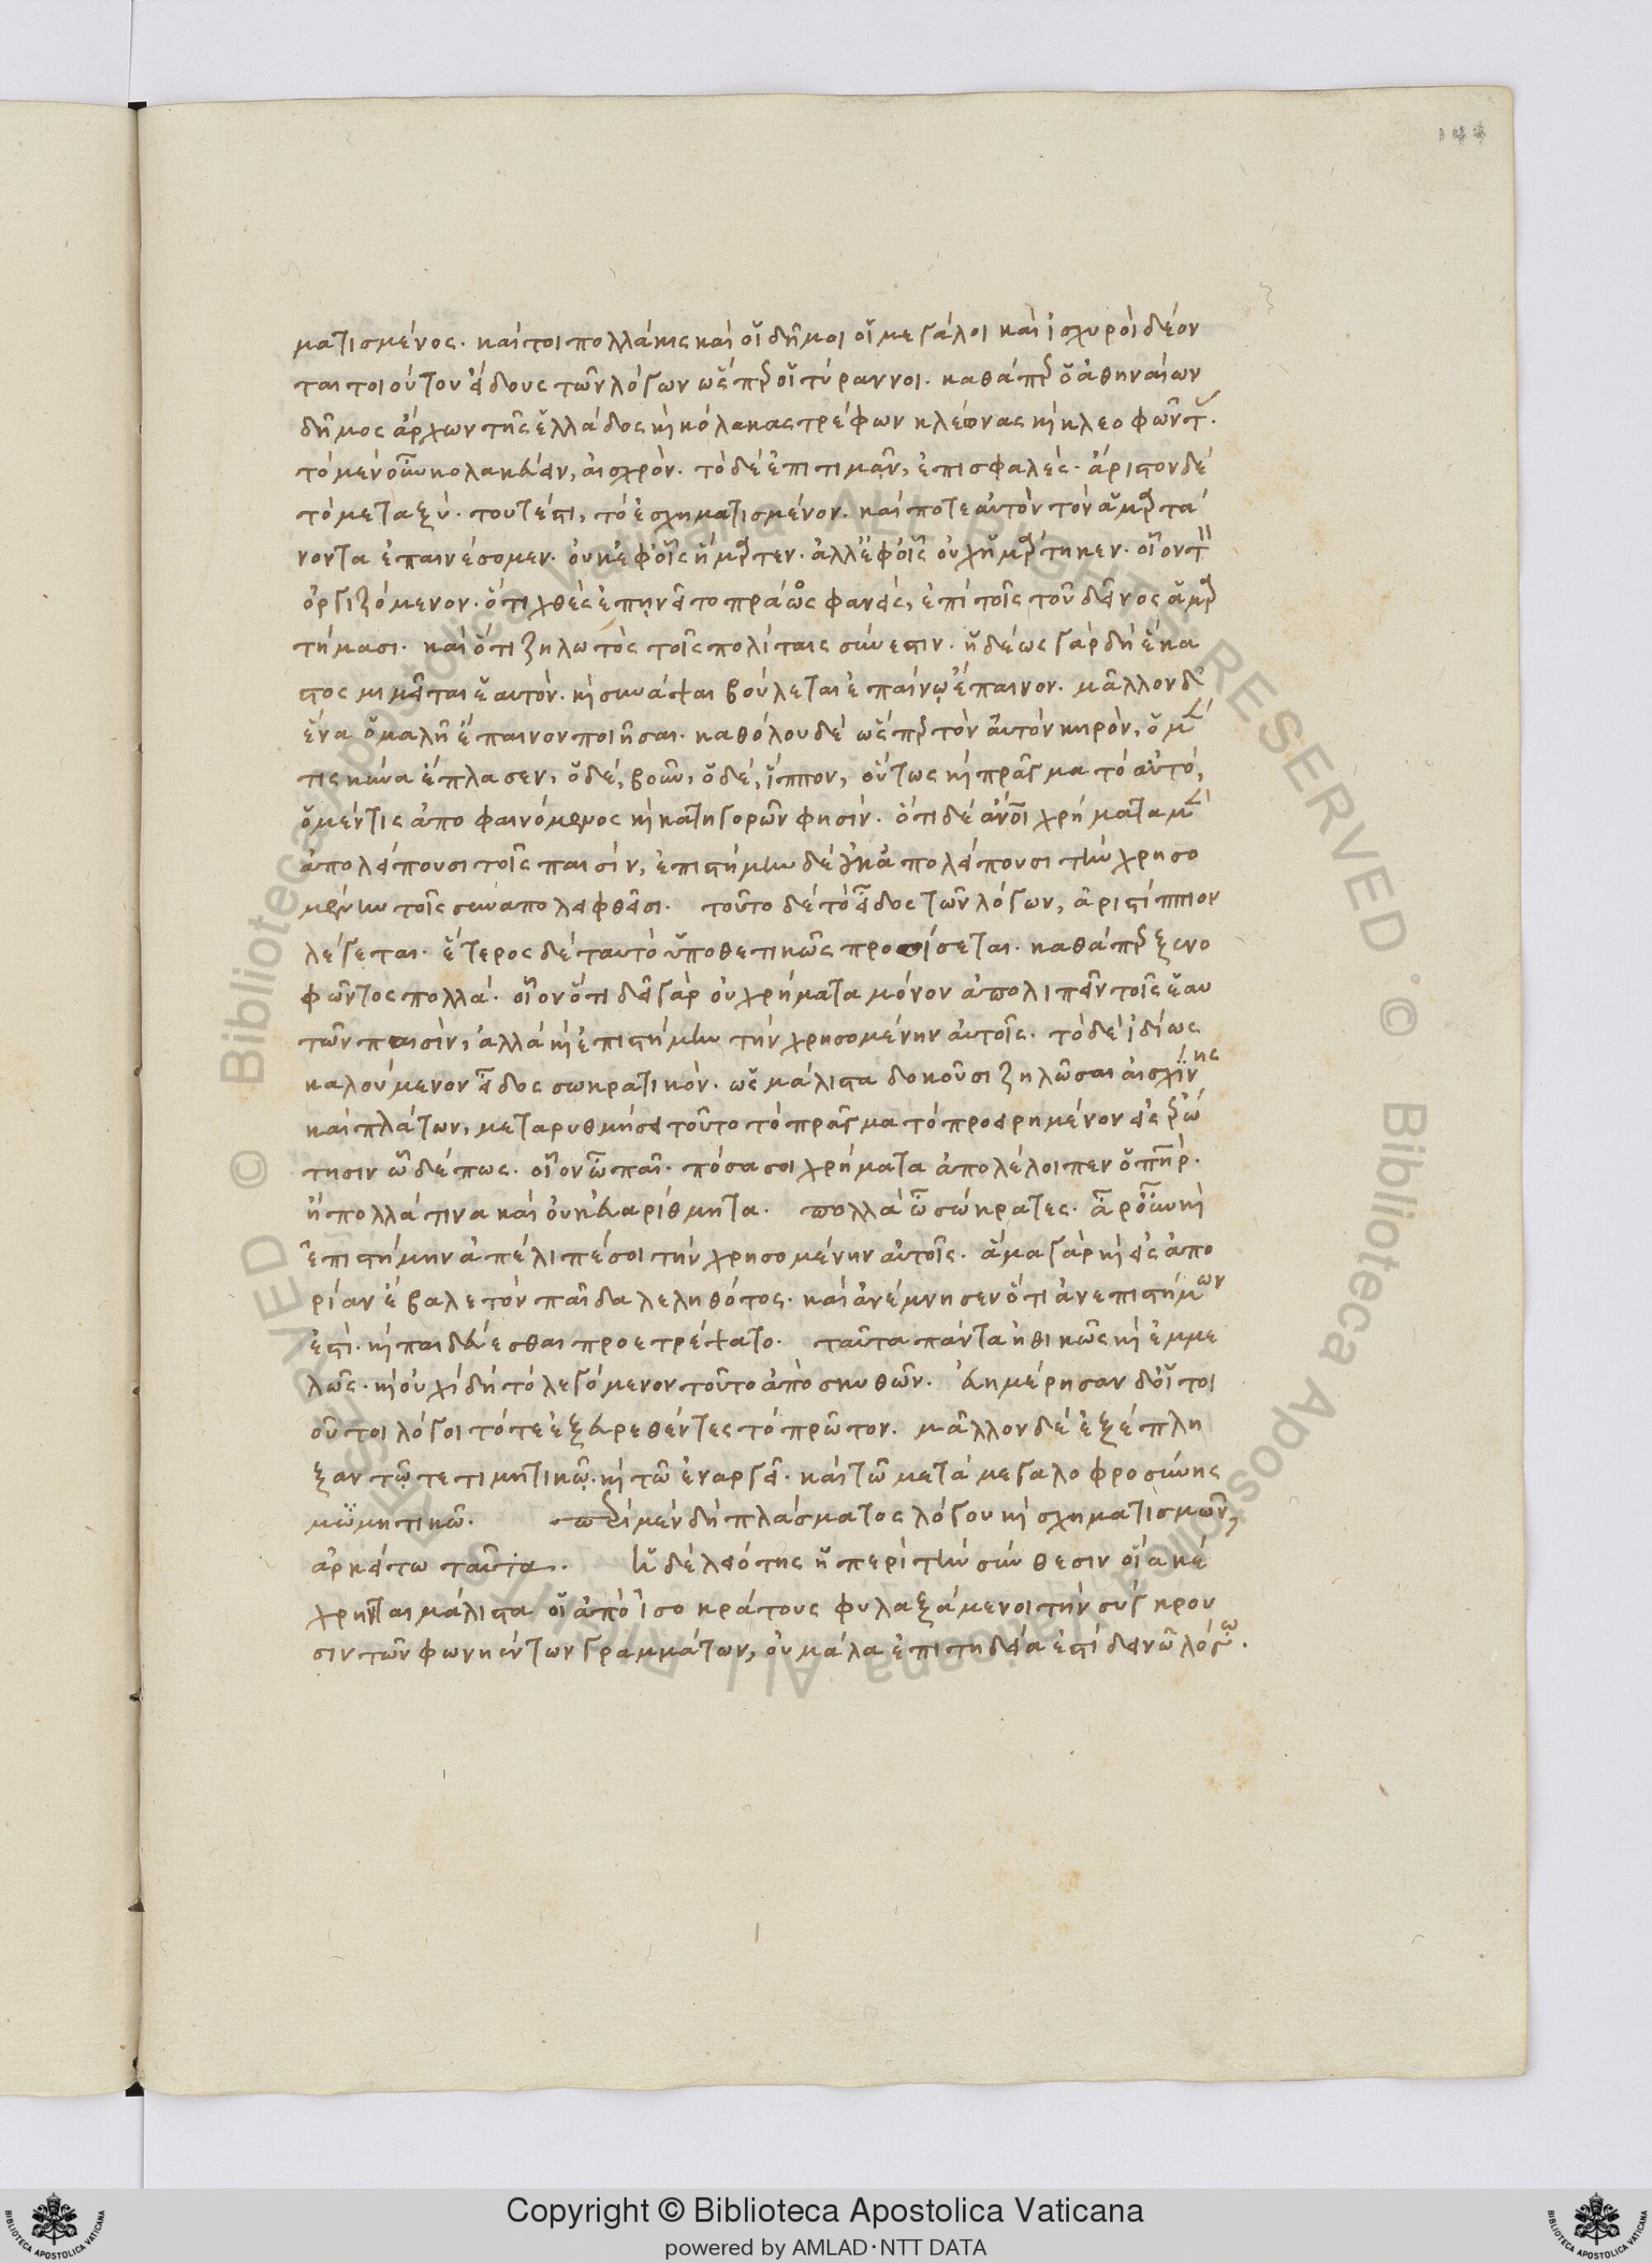 ματισμένος. καίτοι πολλάκις καὶ οἱ δῆμοι οἱ μεγάλοι καὶ ἰσχυροὶ δέον
ται τοιούτου εἴδους τῶν λόγων ὥσπερ οἱ τύραννοι. καθάπερ ὁ ἀθηναίων
δῆμος ἄρχων τῆς ἑλλάδος καὶ κόλακας τρέφων κλέωνας καὶ κλεοφῶντας.
τὸ μὲν οὖν κολακεύειν, αἰσχρόν. τὸ δὲ ἐπιτιμᾶν, ἐπισφαλές. ἄριστον δὲ
τὸ μεταξύ. τουτέστι, τὸ ἐσχηματισμένον. καί ποτε αὐτὸν τὸν ἁμαρτά
νοντα ἐπαινέσομεν. οὐκ ἐφ' οἷς ἥμαρτεν. ἀλλ' ἐφ' οἷς οὐχ ἡμάρτηκεν. οἷον τὸν
ὀργιζόμενον. ὅτι χθὲς ἐπῃνεῖτο πρᾶος φανεὶς, ἐπὶ τοῖς τοῦ δεῖνος ἁμαρ
τήμασι. καὶ ὅτι ζηλωτὸς τοῖς πολίταις σύνεστιν. ἡδέως γὰρ δὴ ἕκα
στος μιμεῖται ἑαυτόν. καὶ συνάψαι βούλεται ἐπαίνῳ ἔπαινον. μᾶλλον δ'
ἕνα ὁμαλῆ ἔπαινον ποιῆσαι. καθόλου δὲ ὥσπερ τὸν αὐτὸν κηρὸν, ὁ μέν
τις κύνα ἔπλασεν, ὁ δὲ, βοῦν, ὁ δὲ, ἵππον, οὕτως καὶ πρᾶγμα τὸ αὐτό,
ὁ μέν τις ἀποφαινόμενος καὶ κατηγορῶν φησίν. ὅτι δὲ ἄνοι χρήματα μὲν
ἀπολείπουσι τοῖς παισίν, ἐπιστήμην δὲ οὐκ ἀπολείπουσι τὴν χρησο
μένην τοῖς συναπολειφθεῖσι. τοῦτο δὲ τὸ εἶδος τῶν λόγων, ἀριστίππιον
λέγεται. ἕτερος δὲ ταυτὸ ὑποθετικῶς προοίσεται. καθάπερ ξενο
φῶντος πολλά. οἷον ὅτι δεῖ γὰρ οὐ χρήματα μόνον ἀπολιπεῖν τοῖς ἑαυ
τῶν παισίν, ἀλλὰ καὶ ἐπιστήμην τὴν χρησομένην αὐτοῖς. τὸ δὲ ἰδίως
καλούμενον εἶδος σωκρατικὸν. ὡς μάλιστα δοκοῦσι ζηλῶσαι αἰσχίνης
καὶ πλάτων, μεταρυθμήσει τοῦτο τὸ πρᾶγμα τὸ προειρημένον εἰς ἐρώ
τησιν ὧδέ πως. οἷον ὦ παῖ. πόσα σοι χρήματα ἀπολέλοιπεν ὁ πηρ.
ἢ πολλά τινα καὶ οὐκ εὐαρίθμητα. πολλὰ ὦ σώκρατες. ἆρ' οὖν καὶ
ἐπιστήμην ἀπέλιπέ σοι τὴν χρησομένην αὐτοῖς. ἅμα γὰρ καὶ εἰς ἀπο
ρίαν ἔβαλε τὸν παῖδα λεληθότος. καὶ ἀνέμνησεν ὅτι ἀνεπιστήμων
ἐστί. καὶ παιδεύεσθαι προετρέψατο. ταῦτα πάντα ἠθικῶς καὶ ἐμμε
λῶς. καὶ οὐχὶ δὴ τὸ λεγόμενον τοῦτο ἀπὸ σκυθῶν. εὐημέρησαν δ' οἱ τοι
οῦτοι λόγοι τότε ἐξευρεθέντες τὸ πρῶτον. μᾶλλον δὲ ἐξέπλη
ξαν τῷ τε τιμητικῷ. καὶ τῷ ἐναργεῖ. καὶ τῷ μετὰ μεγαλοφροσύνης
μωμητικῷ. περὶ μὲν δὴ πλάσματος λόγου καὶ σχηματισμῶν,
ἀρκείτω ταῦτα. ἡ δὲ λειότης ἡ περὶ τὴν σύνθεσιν οἵα κέ
χρηνται μάλιστα οἱ ἀπὸ ἰσοκράτους φυλαξάμενοι τὴν σύγκρου
σιν τῶν φωνηέντων γραμμάτων, οὐ μάλα ἐπιτηδεία ἐστὶ δεινῷ λόγῳ.
Copyright © Biblioteca Apostolica Vaticana
powered by AMLAD·NTT DATA